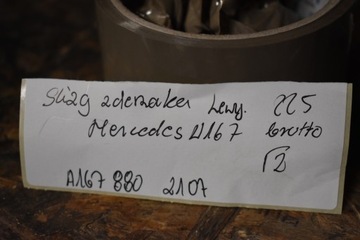 Ślizg zderzaka Lewy. 225
Mercedes W167 brutto
A167 880 2107